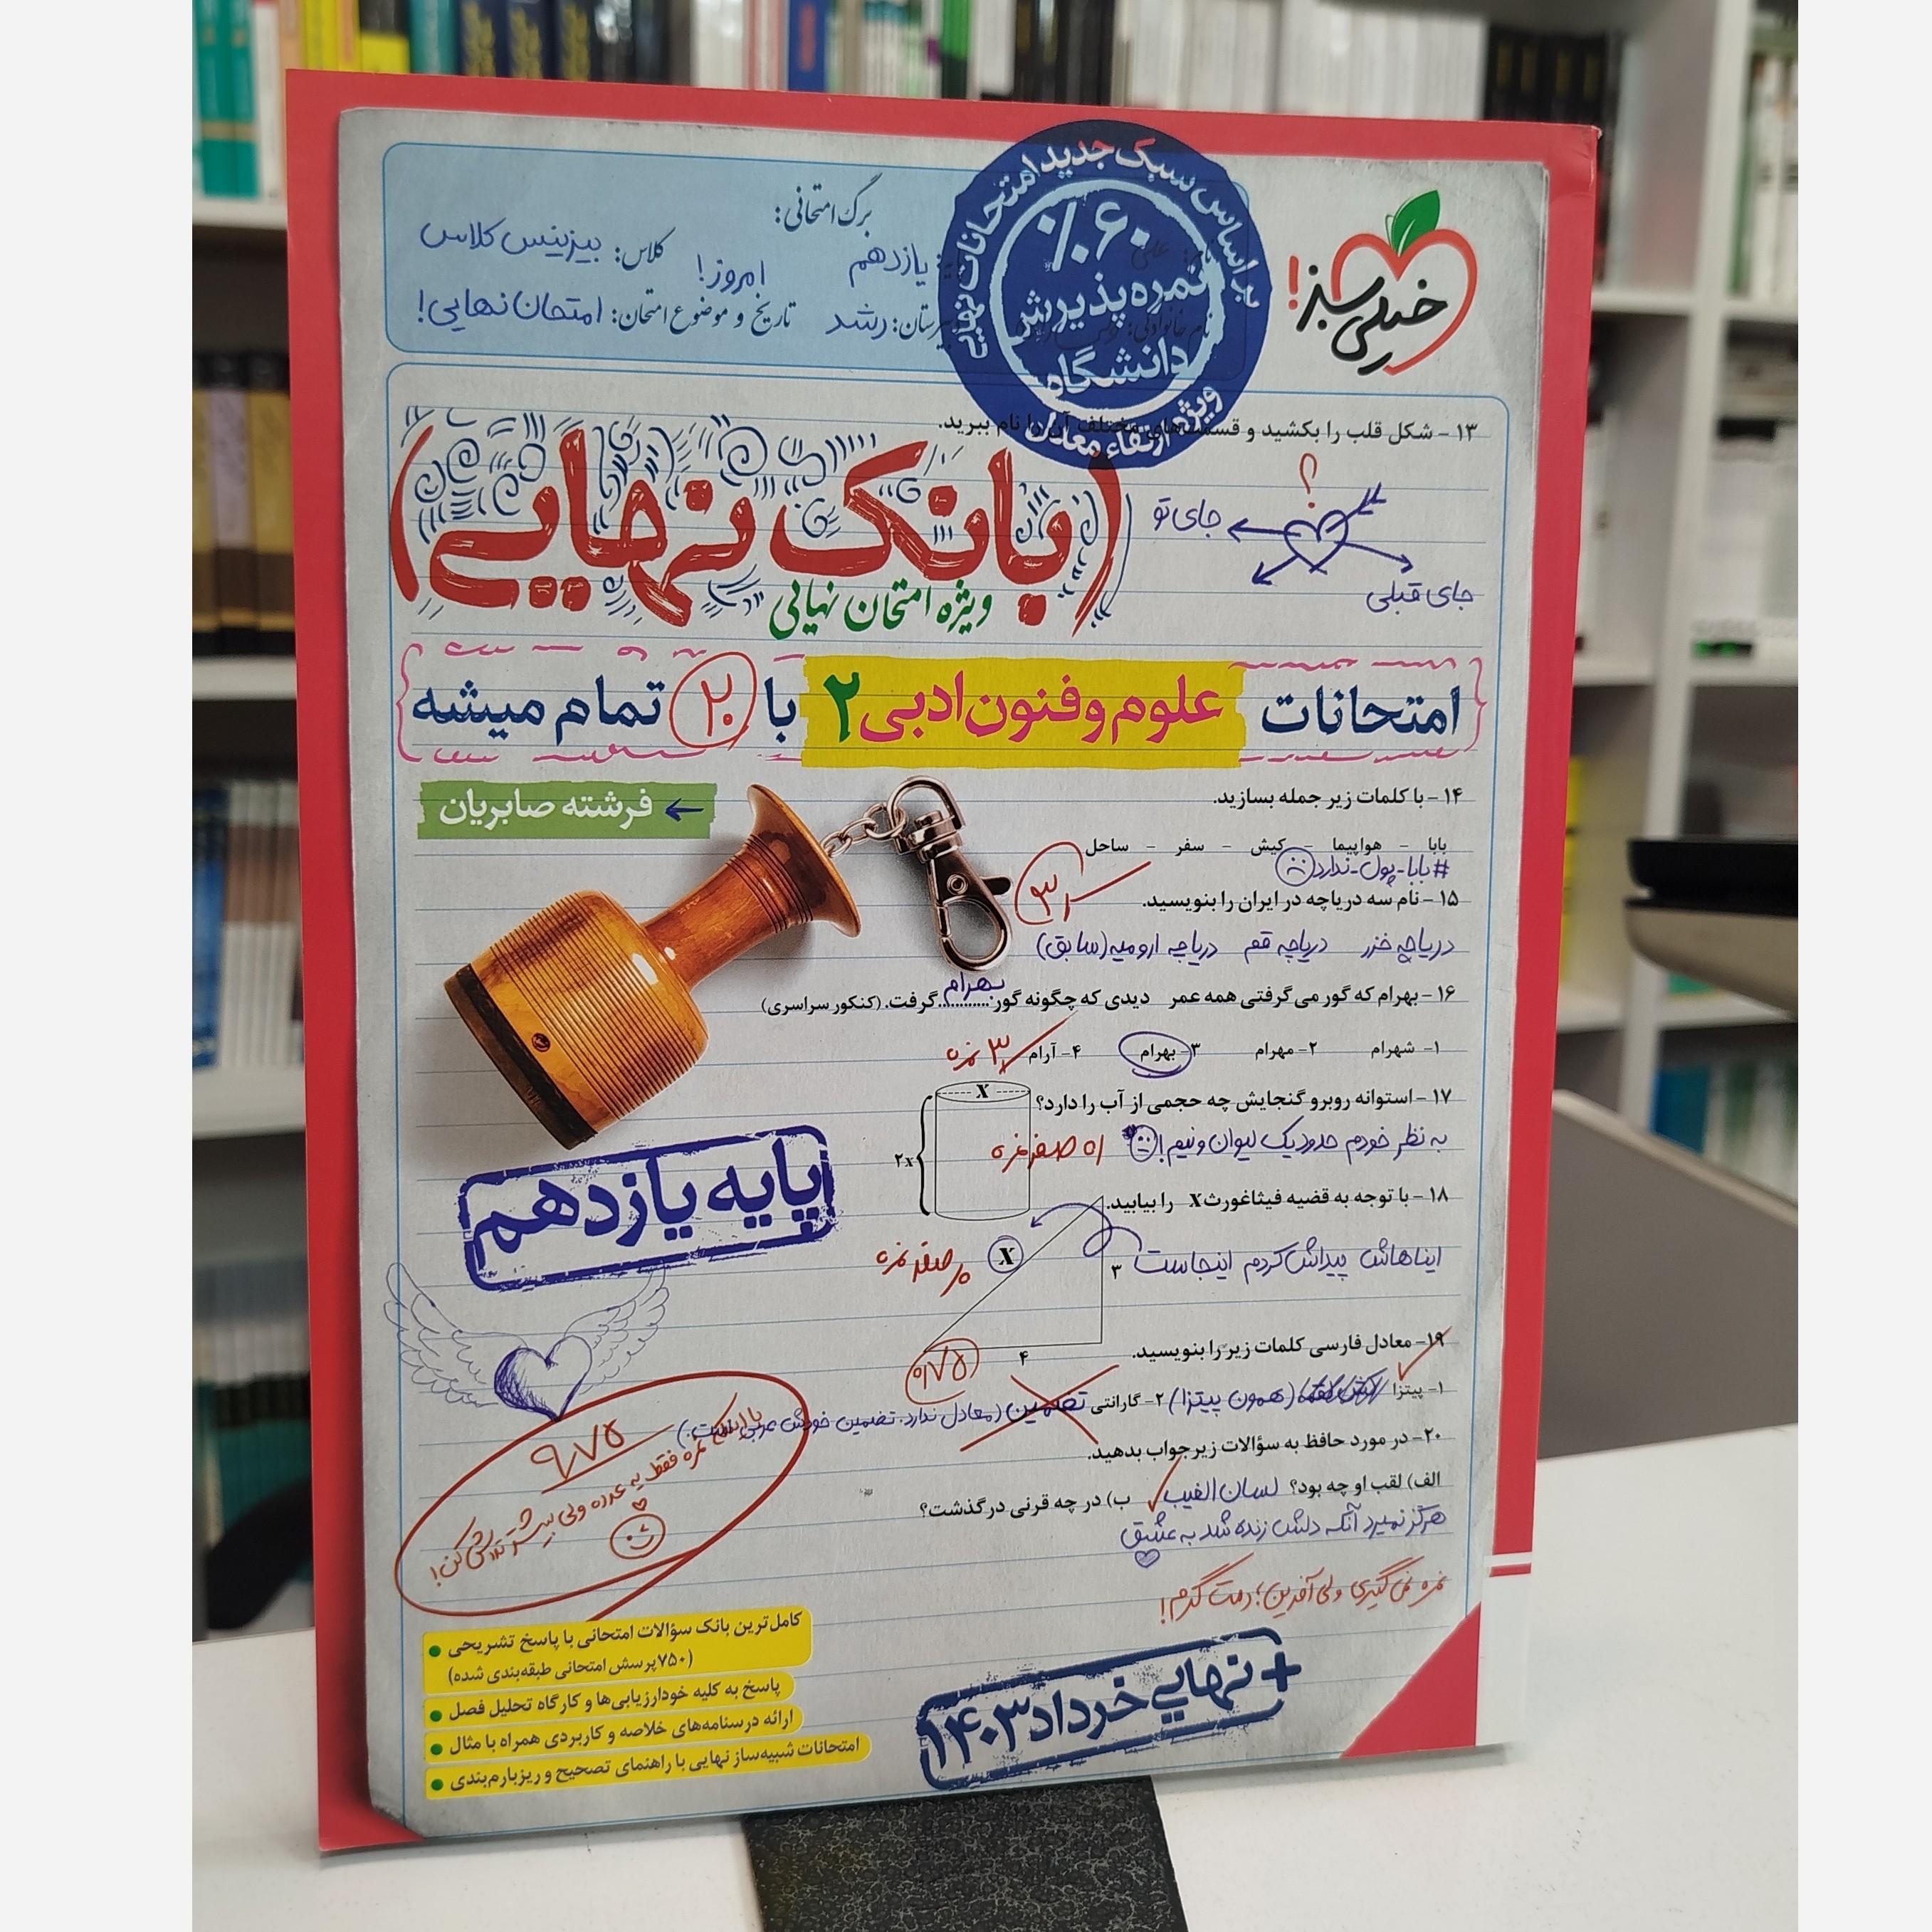 براساس سبک جدید امتحانات نهایی
٪۶۰
نمره پذیرش
دانشگاه
ویژه ارتقاء معدل
خیلی سبز!
برگ امتحانی:
نام: علی
یازدهم
امروز!
کلاس: بیزینس کلاس
نام خانوادگی:
رشد
تاریخ و موضوع امتحان: امتحان نهایی!
۱۳ - شکل قلب را بکشید و قسمت‌های مختلف آن را نام ببرید.
؟
جای تو
جای قبلی
(بانک نهایی)
ویژه امتحان نهایی
امتحانات علوم و فنون ادبی ۲ با ۲۰ تمام میشه
← فرشته صابریان
۱۴ - با کلمات زیر جمله بسازید.
بابا - هواپیما - کیش - سفر - ساحل
#بابا-پول-ندارد
۱۵ - نام سه دریاچه در ایران را بنویسید.
دریاچه خزر دریاچه قم دریاچه ارومیه (سابق)
۱۶ - بهرام که گور می‌گرفتی همه عمر دیدی که چگونه گور ..بهرام.. گرفت. (کنکور سراسری)
۱- شهرام ۲- مهرام ۳- بهرام ۴- آرام
۳ نمره
۱۷ - استوانه روبرو گنجایش چه حجمی از آب را دارد؟
x
۲x
به نظر خودم حدود یک لیوان و نیم!
صفر نمره
۱۸ - با توجه به قضیه فیثاغورث x را بیابید.
ایناهاش پیداش کردم اینجاست
x
۳
۴
صفر نمره
پایه یازدهم
۱۹- معادل فارسی کلمات زیر را بنویسید.
۱- پیتزا (همون پیتزا) ۲- گارانتی تضمین (معادل ندارد. تضمین خودش عربی است.)
۰/۷۵
۲۰- در مورد حافظ به سؤالات زیر جواب بدهید.
الف) لقب او چه بود؟ لسان الغیب ب) در چه قرنی درگذشت؟
هرگز نمیرد آنکه دلش زنده شد به عشق
نمره نمی‌گیری ولی آفرین؛ دمت گرم!
۹/۷۵
نمره فقط یه عدده ولی بیشتر تلاش کن!
کامل‌ترین بانک سؤالات امتحانی با پاسخ تشریحی
(۷۵۰ پرسش امتحانی طبقه‌بندی شده)
پاسخ به کلیه خودارزیابی‌ها و کارگاه تحلیل فصل
ارائه درسنامه‌های خلاصه و کاربردی همراه با مثال
امتحانات شبیه‌ساز نهایی با راهنمای تصحیح و ریزبارم‌بندی
+ نهایی خرداد ۱۴۰۳